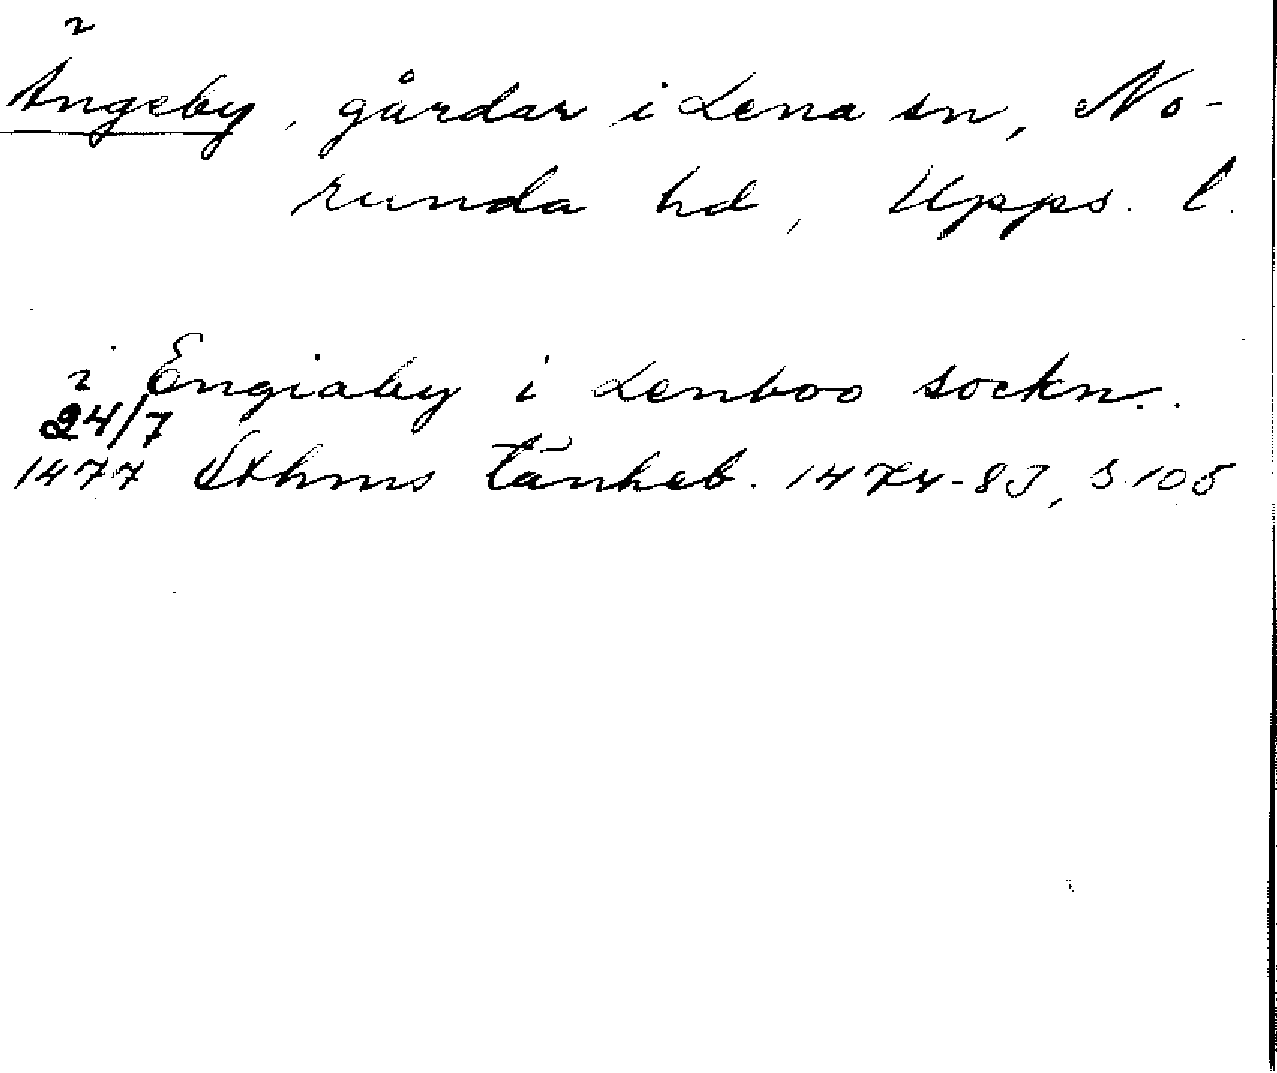 Ängeby, gårdar i Lena sn, No-
runda hd, Upps. l.
i Engiaby i Lenboo sockn.
24/7
1477 Sthms tänkeb. 1474-83, s. 105